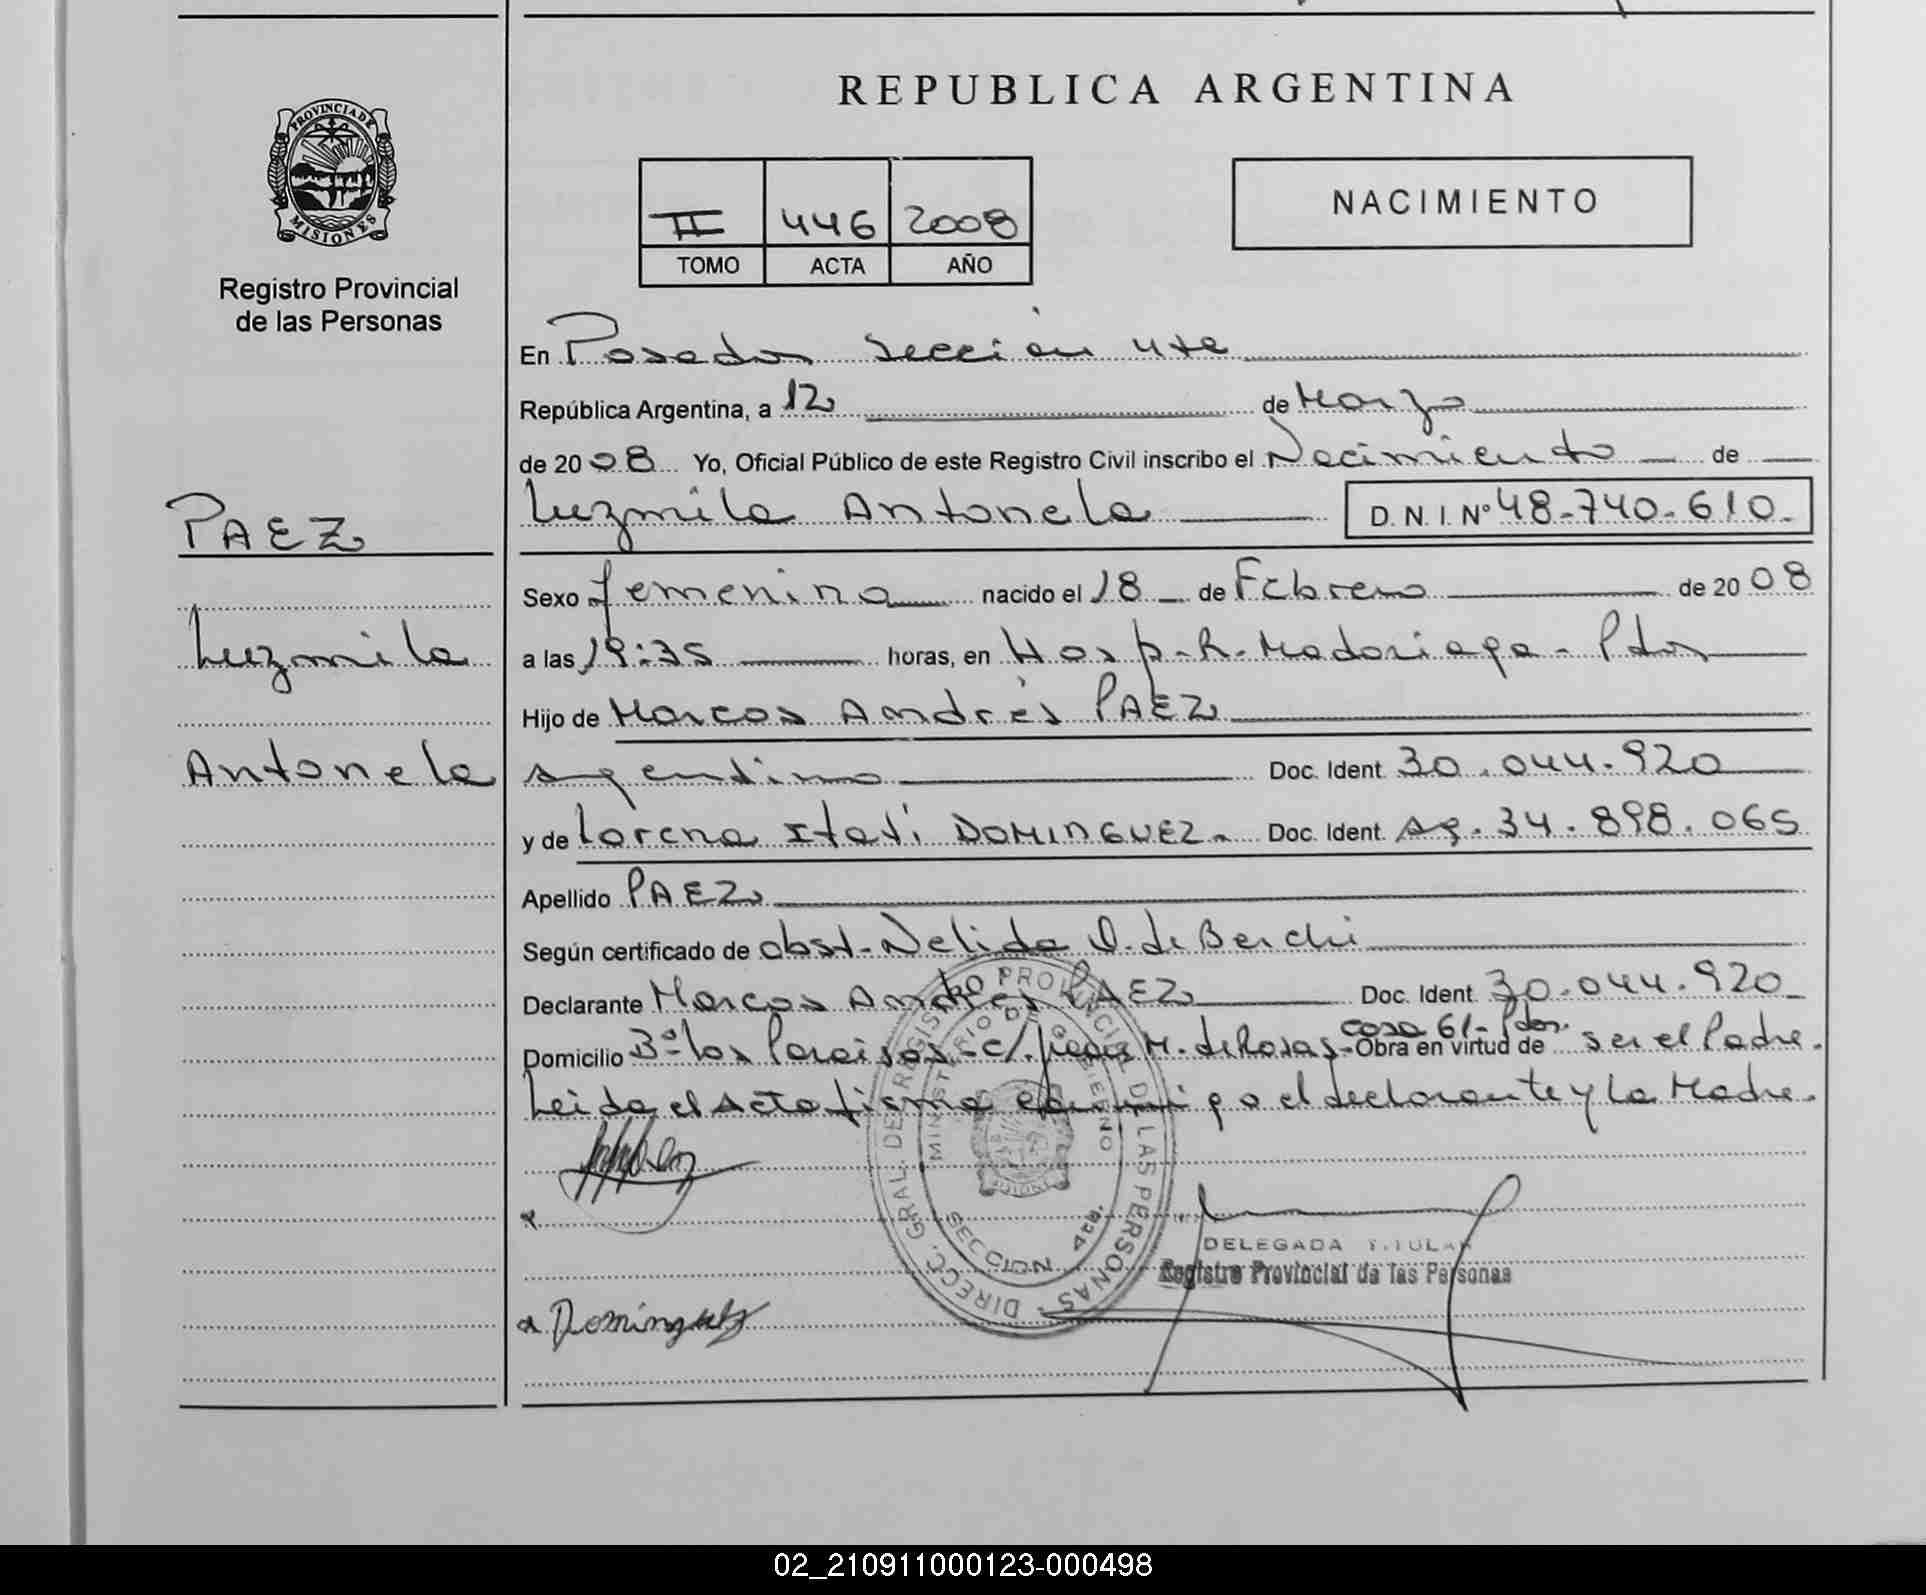 REPUBLICA ARGENTINA
PROVINCIA DE
MISIONES
Registro Provincial
de las Personas
II 446 2008
TOMO ACTA AÑO
NACIMIENTO
En Posadas Sección 4ta
República Argentina, a 12 de Marzo
de 2008 Yo, Oficial Público de este Registro Civil inscribo el Nacimiento de
Luzmila Antonela D.N.I. Nº 48.740.610.
PAEZ
Luzmila
Antonela
Sexo femenino nacido el 18 de Febrero de 2008
a las 19:35 horas, en Hosp. R. Madariaga - Pdas
Hijo de Marcos Andrés PAEZ
argentino Doc. Ident. 30.044.920
y de Lorena Itatí DOMINGUEZ. Doc. Ident. Ag. 34.898.065
Apellido PAEZ
Según certificado de obst. Nelida O. de Berchi
Declarante Marcos Andrés PAEZ Doc. Ident. 30.044.920
casa 61 - Pdas.
Domicilio Bº los Paraisos - c/ M. de Rosas - Obra en virtud de ser el Padre.
Leida el Acta firma conmigo el declarante y la Madre.
DIRECC. GRAL. DE REGISTRO PROVINCIAL DE LAS PERSONAS
MINISTERIO DE GOBIERNO
SECCION 4ta.
MISIONES
DELEGADA TITULAR
Registro Provincial de las Personas
Dominguez
02_210911000123-000498